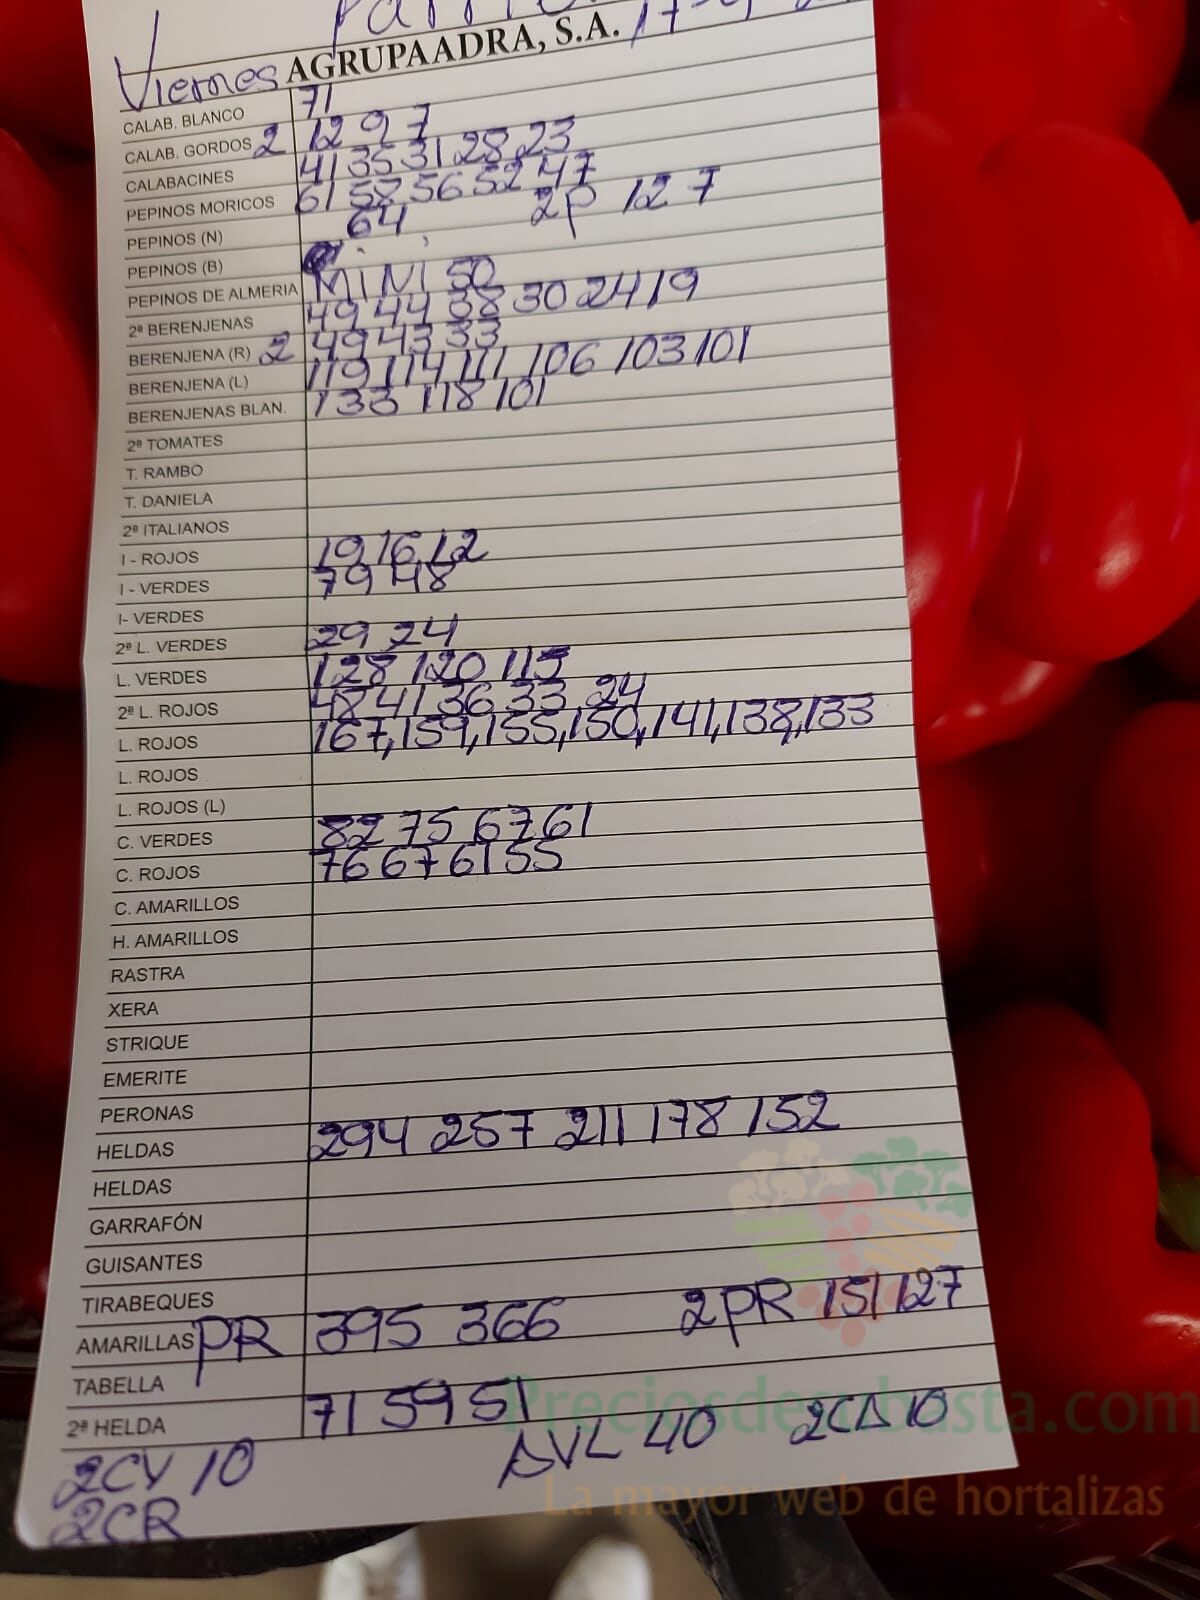 Viernes AGRUPAADRA, S.A. 17-
CALAB. BLANCO 71
CALAB. GORDOS 2 12 9 7
CALABACINES 41 35 31 28 23
PEPINOS MORICOS 61 58 56 52 47
PEPINOS (N) 64 2P 12 7
PEPINOS (B)
PEPINOS DE ALMERIA MINI 50
2ª BERENJENAS 49 44 38 30 24 19
BERENJENA (R) 2 49 43 33
BERENJENA (L) 119 114 111 106 103 101
BERENJENAS BLAN. 133 118 101
2ª TOMATES
T. RAMBO
T. DANIELA
2ª ITALIANOS
I - ROJOS 19 16 12
I - VERDES 79 48
I- VERDES
2ª L. VERDES 29 24
L. VERDES 128 120 115
2ª L. ROJOS 48 41 36 33 24
L. ROJOS 167, 159, 155, 150, 141, 138, 133
L. ROJOS
L. ROJOS (L)
C. VERDES 82 75 67 61
C. ROJOS 76 67 61 55
C. AMARILLOS
H. AMARILLOS
RASTRA
XERA
STRIQUE
EMERITE
PERONAS
HELDAS 294 257 211 178 152
HELDAS
GARRAFÓN
GUISANTES
TIRABEQUES
AMARILLAS PR 395 366 2PR 151 127
TABELLA
2ª HELDA 71 59 51
Preciosdesubasta.com
2CV 10 AVL 40 2CA 10
2CR
La mayor web de hortalizas